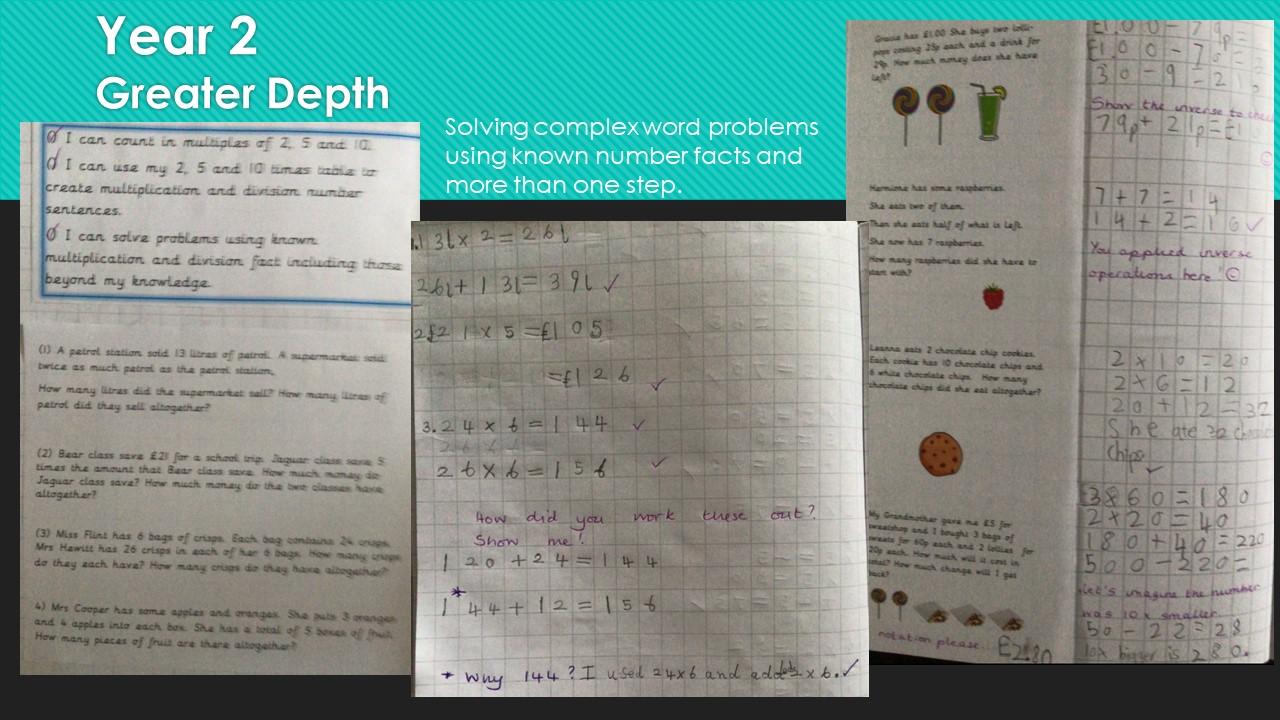 Year 2
Greater Depth
Solving complex word problems
using known number facts and
more than one step.
I can count in multiples of 2, 5 and 10.
I can use my 2, 5 and 10 times table to
create multiplication and division number
sentences.
I can solve problems using known
multiplication and division fact including those
beyond my knowledge.
(1) A petrol station sold 13 litres of petrol. A supermarket sold
twice as much petrol as the petrol station.
How many litres did the supermarket sell? How many litres of
petrol did they sell altogether?
(2) Bear class save £21 for a school trip. Jaguar class save 5
times the amount that Bear class save. How much money do
Jaguar class save? How much money do the two classes have
altogether?
(3) Miss Flint has 6 bags of crisps. Each bag contains 24 crisps.
Mrs Hewitt has 26 crisps in each of her 6 bags. How many crisps
do they each have? How many crisps do they have altogether?
4) Mrs Cooper has some apples and oranges. She puts 3 oranges
and 4 apples into each box. She has a total of 5 boxes of fruit.
How many pieces of fruit are there altogether?
13l x 2 = 26l
26l + 13l = 39l ✓
2 £21 x 5 = £105
= £126 ✓
3. 24 x 6 = 144 ✓
26 x 6 = 156 ✓
How did you work these out?
Show me!
120 + 24 = 144
*
144 + 12 = 156
* Why 144? I used 24x6 and add 2 x 6. ✓
Gracie has £1.00 She buys two lolli-
pops costing 25p each and a drink for
29p. How much money does she have
left?
Hermione has some raspberries.
She eats two of them.
Then she eats half of what is left.
She now has 7 raspberries.
How many raspberries did she have to
start with?
Leanna eats 2 chocolate chip cookies.
Each cookie has 10 chocolate chips and
6 white chocolate chips. How many
chocolate chips did she eat altogether?
My Grandmother gave me £5 for
sweetshop and I bought 3 bags of
sweets for 60p each and 2 lollies for
20p each. How much will it cost in
total? How much change will I get
back?
notation please. £2.80
£1.00 - 79p =
£1.00 - 7
30 - 9 = 21
Show the inverse to check
79p + 21p = £1
7 + 7 = 14
14 + 2 = 16 ✓
You applied inverse
operations here
2 x 10 = 20
2 x 6 = 12
20 + 12 = 32
She ate 32
chips ✓
3 x 60 = 180
2 x 20 = 40
180 + 40 = 220
500 - 220 =
Let's imagine the number
was 10x smaller
50 - 22 = 28
10x bigger is 280.